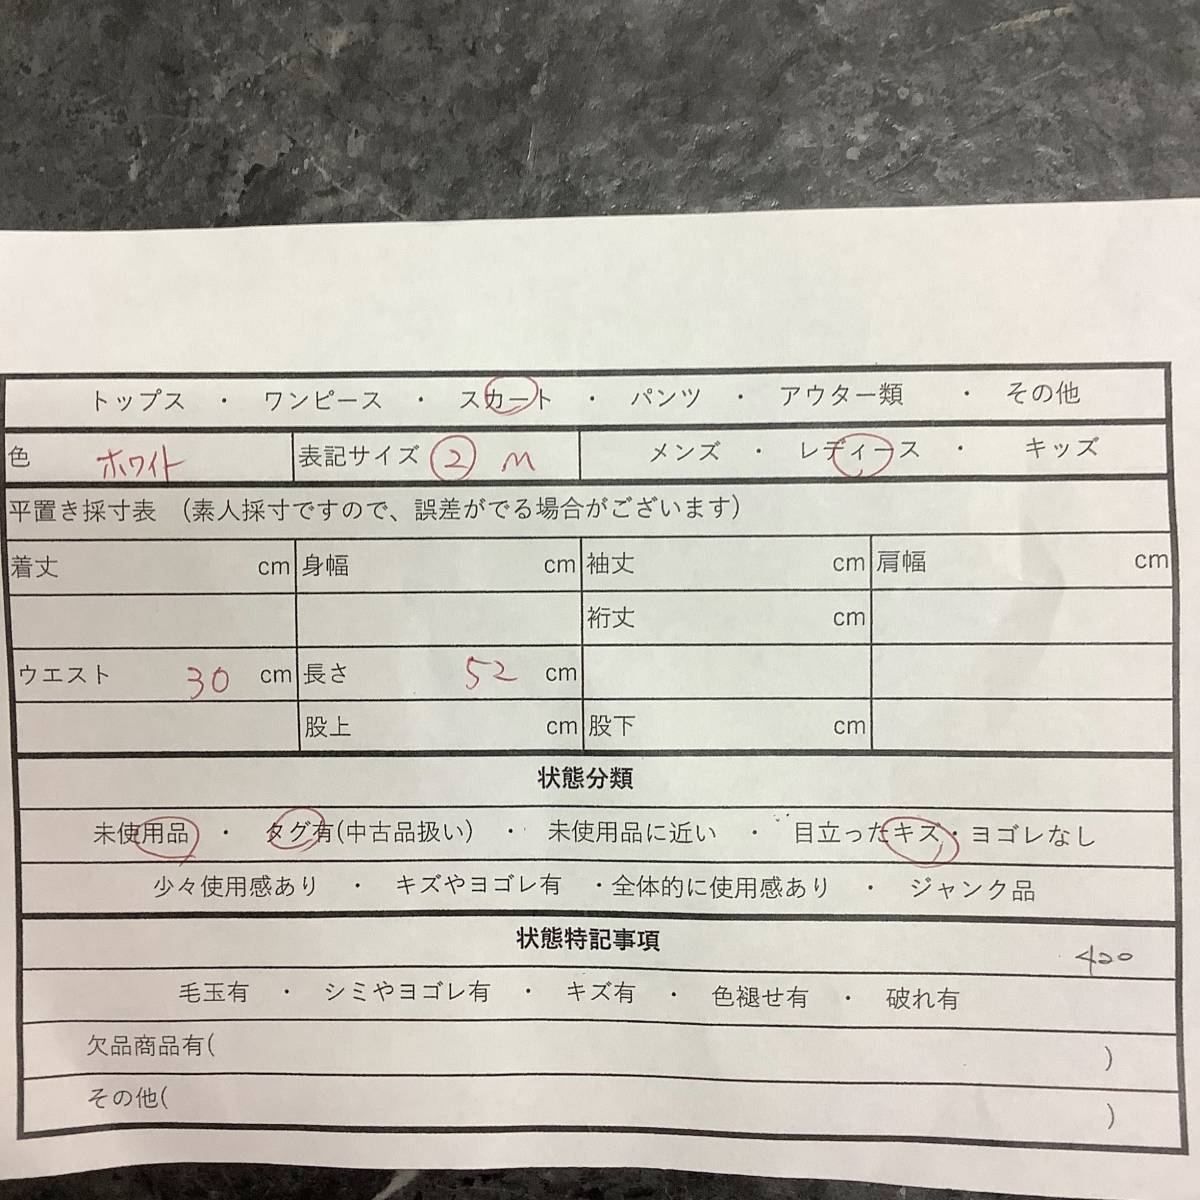 トップス ・ ワンピース ・ スカート ・ パンツ ・ アウター類 ・ その他
色 ホワイト 表記サイズ ② M メンズ ・ レディース ・ キッズ
平置き採寸表 (素人採寸ですので、誤差がでる場合がございます)
着丈 cm 身幅 cm 袖丈 cm 肩幅 cm
裄丈 cm
ウエスト 30 cm 長さ 52 cm
股上 cm 股下 cm
状態分類
未使用品 ・ タグ有(中古品扱い) ・ 未使用品に近い ・ 目立ったキズ・ヨゴレなし
少々使用感あり ・ キズやヨゴレ有 ・全体的に使用感あり ・ ジャンク品
状態特記事項
420
毛玉有 ・ シミやヨゴレ有 ・ キズ有 ・ 色褪せ有 ・ 破れ有
欠品商品有( )
その他( )